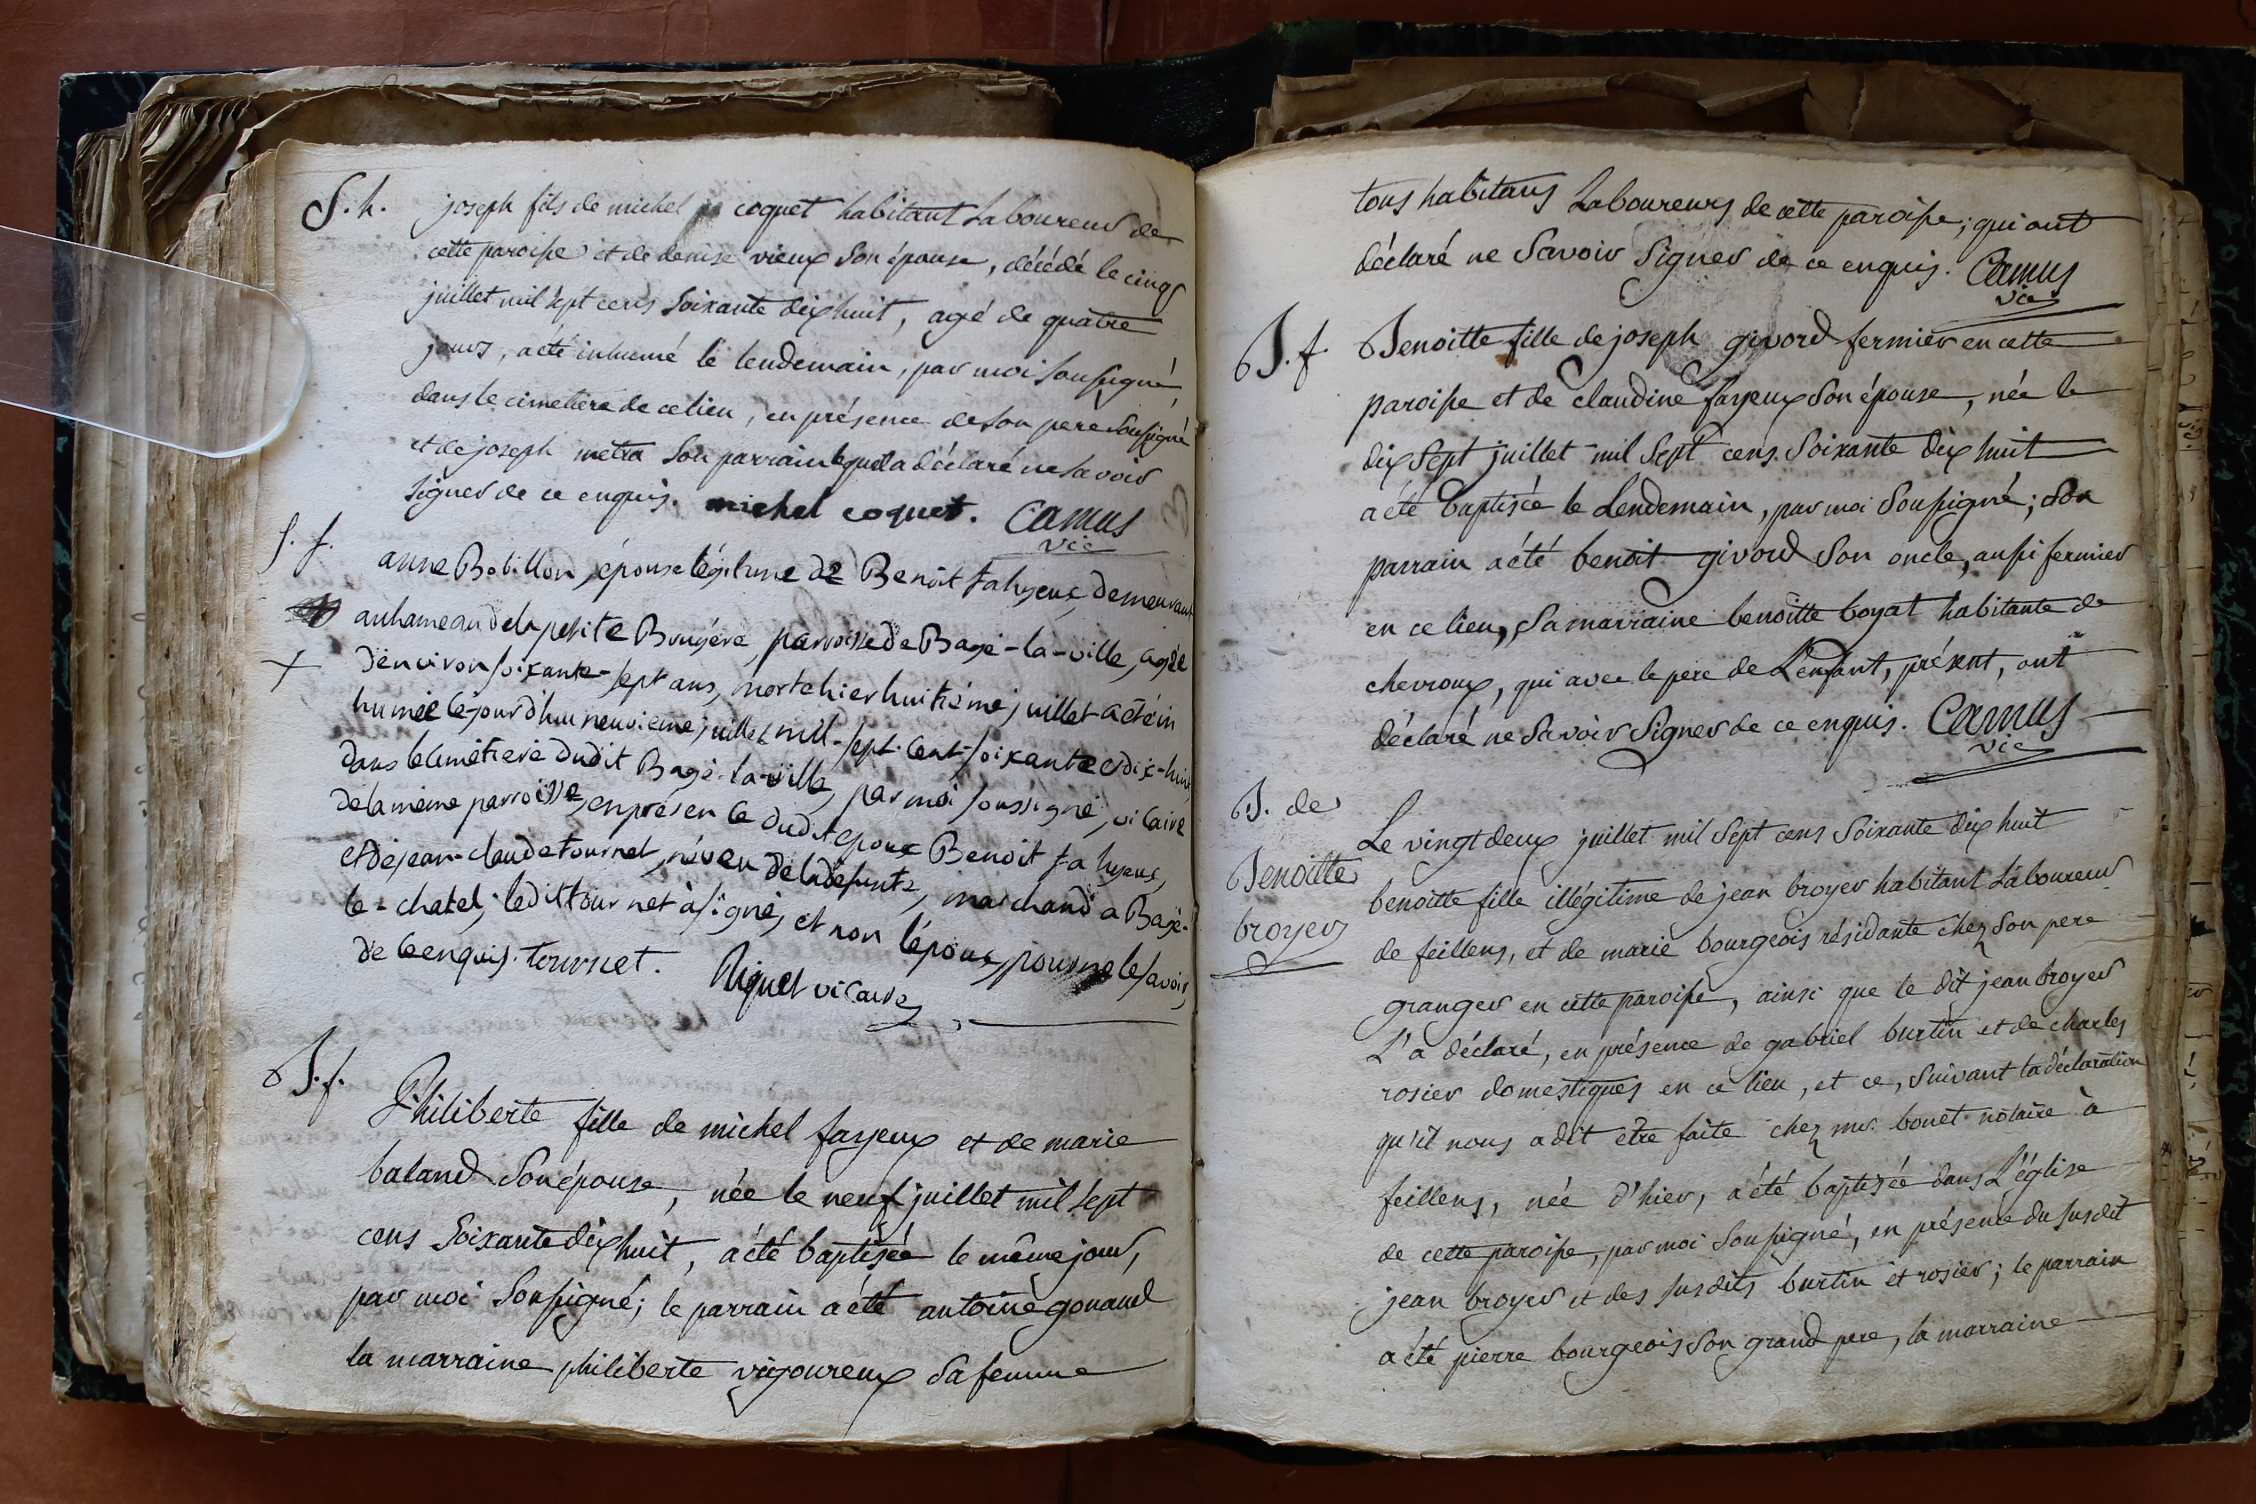 S. h.
joseph fils de michel coquet habitant Laboureur de
cette paroisse et de denise vieux son épouse, décédé le cinq
juillet mil sept cens soixante dix huit, agé de quatre
jours, a été inhumé le lendemain, par moi soussigné,
dans le cimetiere de ce lieu, en présence de son pere soussigné
et de joseph metra son parrain lequel a déclaré ne savoir
signer de ce enquis. michel coquet. Camus
vic
S. f.
anne Bobillon, épouse légitime de Benôit fahyeux, demeurant
au hameau de la petite Bruyére, parroisse de Bagé-la-ville, agée
d'environ soixante-sept ans, morte hier huitiéme juillet a été in
humée cejourd'hui neuvieme juillet mil-sept-cent-soixante et dix-huit
dans le cimétiere dudit Bagé-la-ville, par moi soussigné, vicaire
de la même parroisse, en présence dudit époux Benoit fahyeux,
et de jean-claude tournet, néveu de la défunte, marchand a Bagé-
le-chatel; ledit tournet à signé, et non l'époux, pour ne le savoir,
de ce enquis. tournet. Riguet vicaire
B. f.
Philiberte fille de michel fayeux et de marie
baland son épouse, née le neuf juillet mil sept
cens soixante dix huit, a été baptisée le même jour,
par moi soussigné; le parrain a été antoine gonaud
la marraine philiberte vigoureux sa femme
tous habitans Laboureurs de cette paroisse; qui ont
déclaré ne savoir signer de ce enquis. Camus
vic
B. f.
Benoitte fille de joseph givord fermier en cette
paroisse et de claudine fayeux son épouse, née le
dix sept juillet mil sept cens soixante dix huit
a été baptisée le Lendemain, par moi soussigné; son
parrain a été benoit givord son oncle, aussi fermier
en ce lieu, sa marraine benoitte boyat habitante de
chevroux, qui avec le pere de L'enfant, présent, ont
déclaré ne savoir signer de ce enquis. Camus
vic
B. de
Benoitte
broyer
Le vingt deux juillet mil sept cens soixante dix huit
benoitte fille illégitime de jean broyer habitant Laboureur
de feillens, et de marie bourgeois résidante chez son pere
granger en cette paroisse, ainsi que le dit jean broyer
L'a déclaré, en présence de gabriel burtin et de charles
rosier domestiques en ce lieu, et ce, suivant la déclaration
qu'il nous a dit être faite chez mr. bouet notaire à
feillens, née d'hier, a été baptisée dans L'église
de cette paroisse, par moi soussigné, en présence du susdit
jean broyer et des susdits burtin et rosier; le parrain
a été pierre bourgeois son grand pere, la marraine